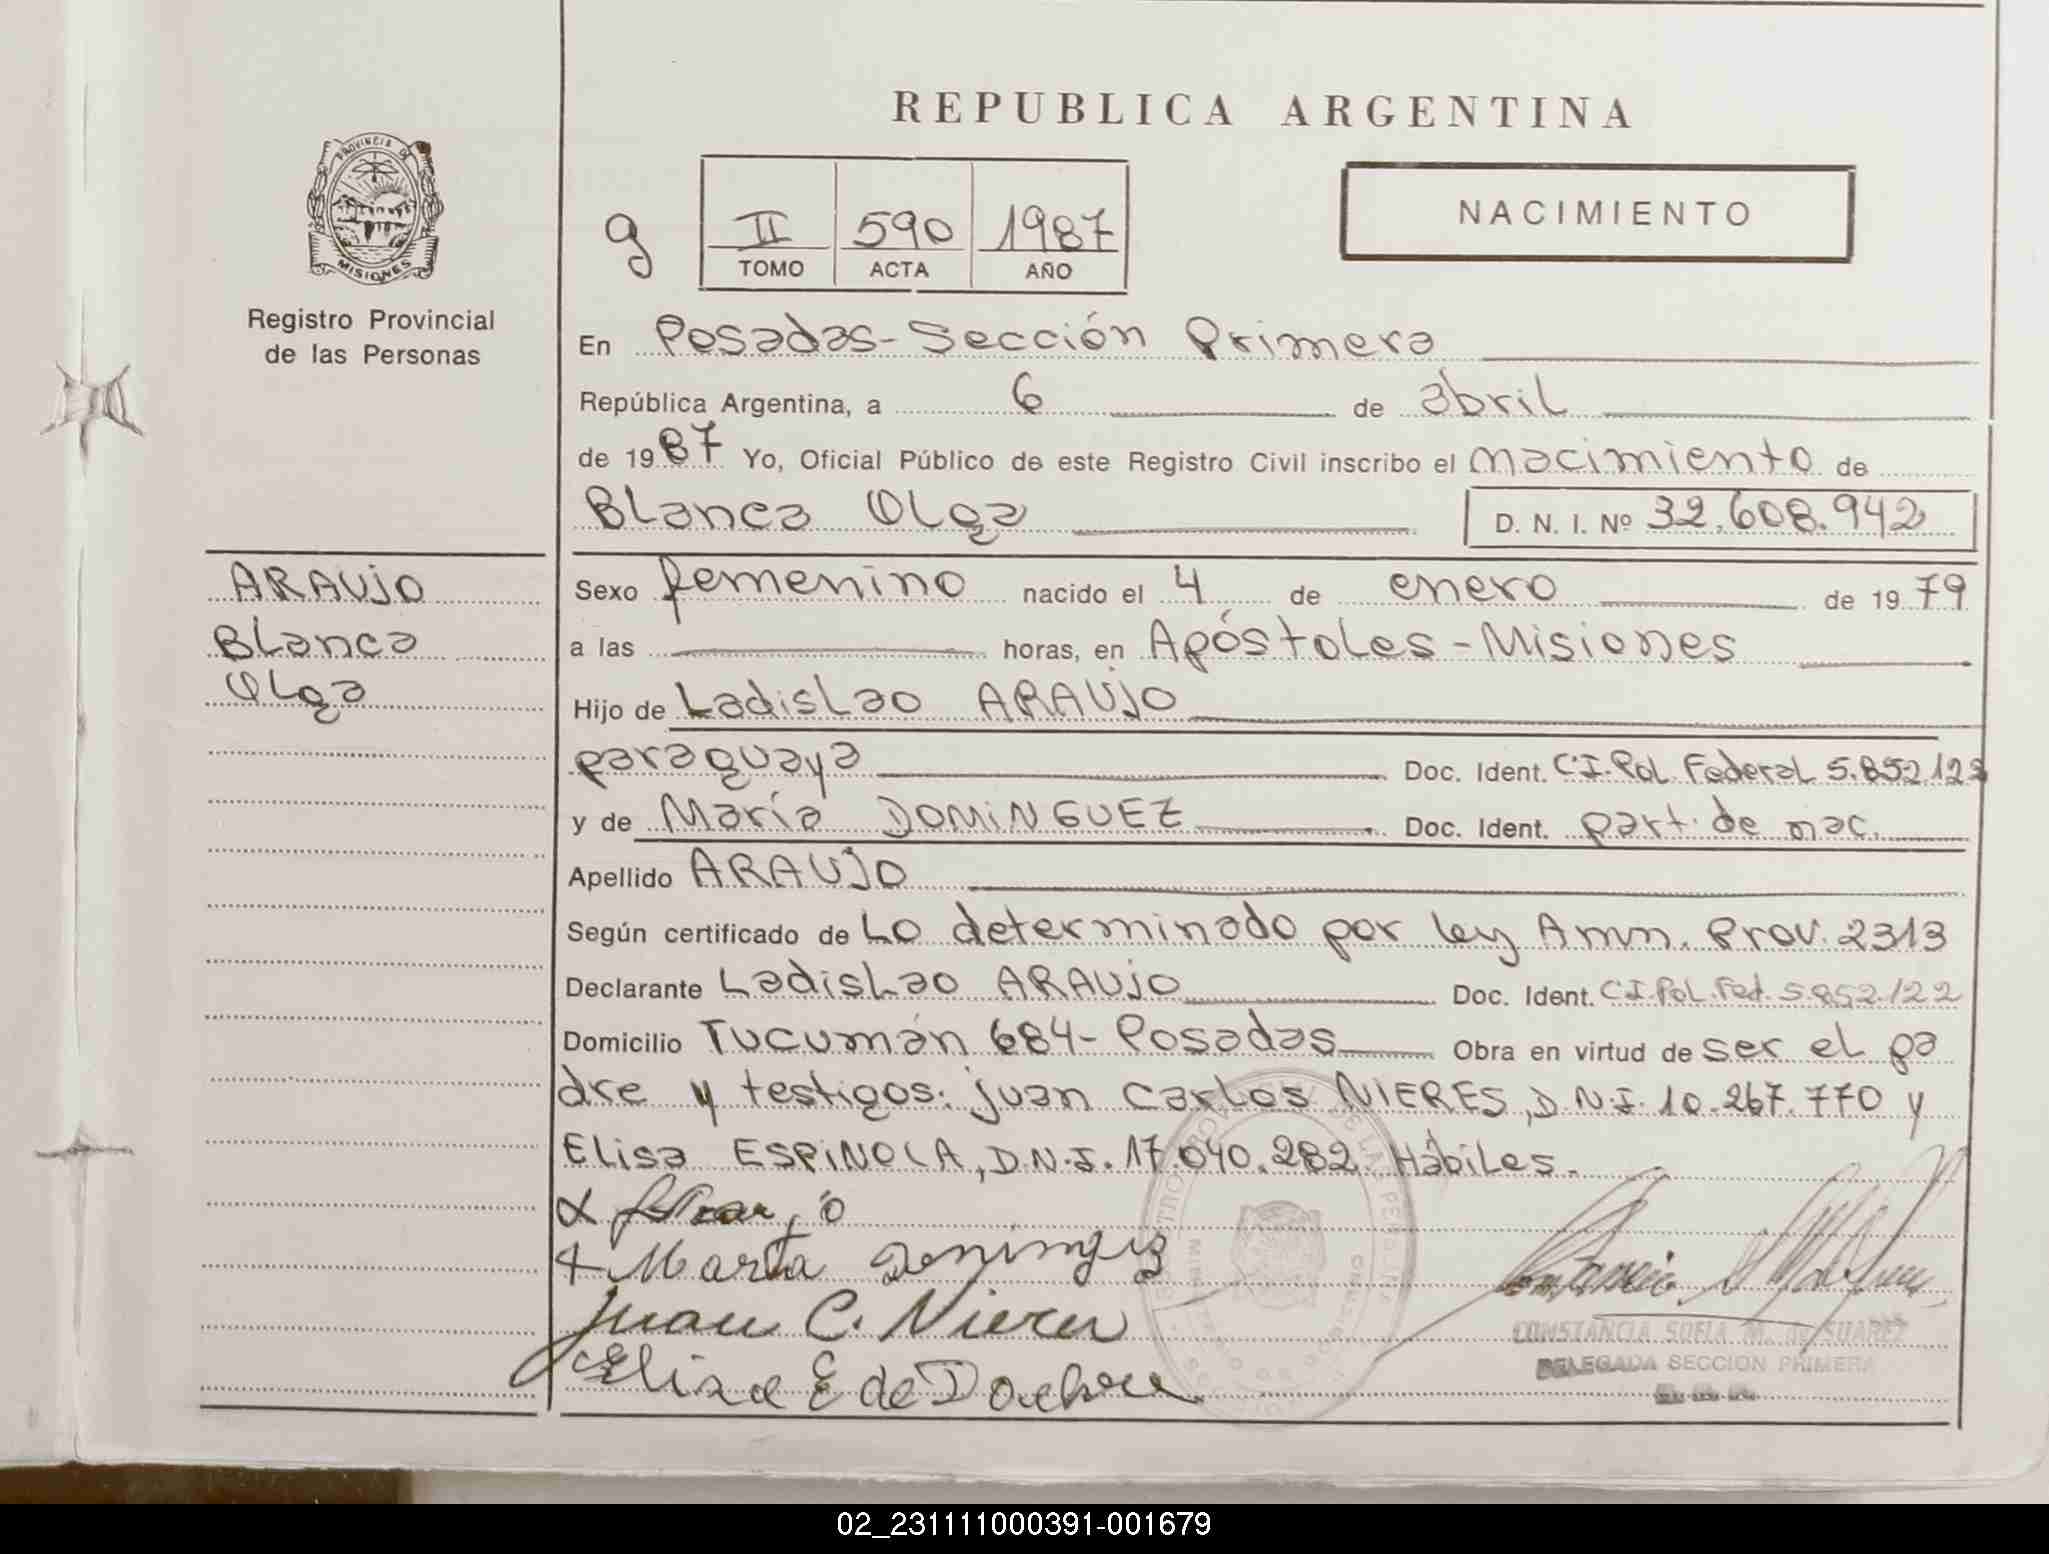 REPUBLICA ARGENTINA
PROVINCIA DE
MISIONES
Registro Provincial
de las Personas
g
II 590 1987
TOMO ACTA AÑO
NACIMIENTO
En Posadas-Sección Primera
República Argentina, a 6 de abril
de 1987 Yo, Oficial Público de este Registro Civil inscribo el nacimiento de
Blanca Olga D. N. I. Nº 32.608.942
ARAUJO
Blanca
Olga
Sexo femenino nacido el 4 de enero de 1979
a las horas, en Apóstoles-Misiones
Hijo de Ladislao ARAUJO
paraguaya Doc. Ident. C.I. Pol Federal 5.852.122
y de María DOMINGUEZ Doc. Ident. part. de nac.
Apellido ARAUJO
Según certificado de Lo determinado por ley Amn. Prov. 2313
Declarante Ladislao ARAUJO Doc. Ident. C.I. Pol. Fed. 5.852.122
Domicilio Tucumán 684- Posadas Obra en virtud de ser el pa
dre y testigos: juan Carlos NIERES, D.N.I. 10.267.770 y
Elisa ESPINOLA, D.N.I. 17.040.282. Hábiles.
Juan C. Nieres
CONSTANCIA SOFIA M. de SUAREZ
DELEGADA SECCION PRIMERA
02_231111000391-001679